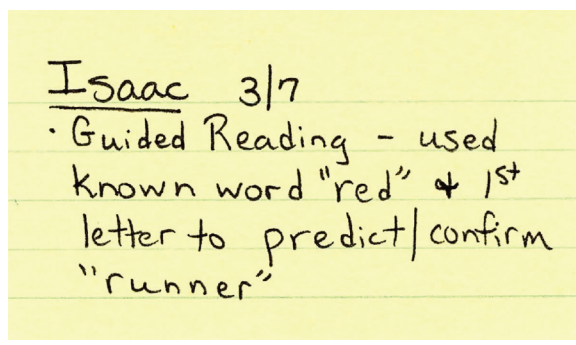 Isaac 3/7
· Guided Reading - used
known word "red" & 1st
letter to predict/confirm
"runner"